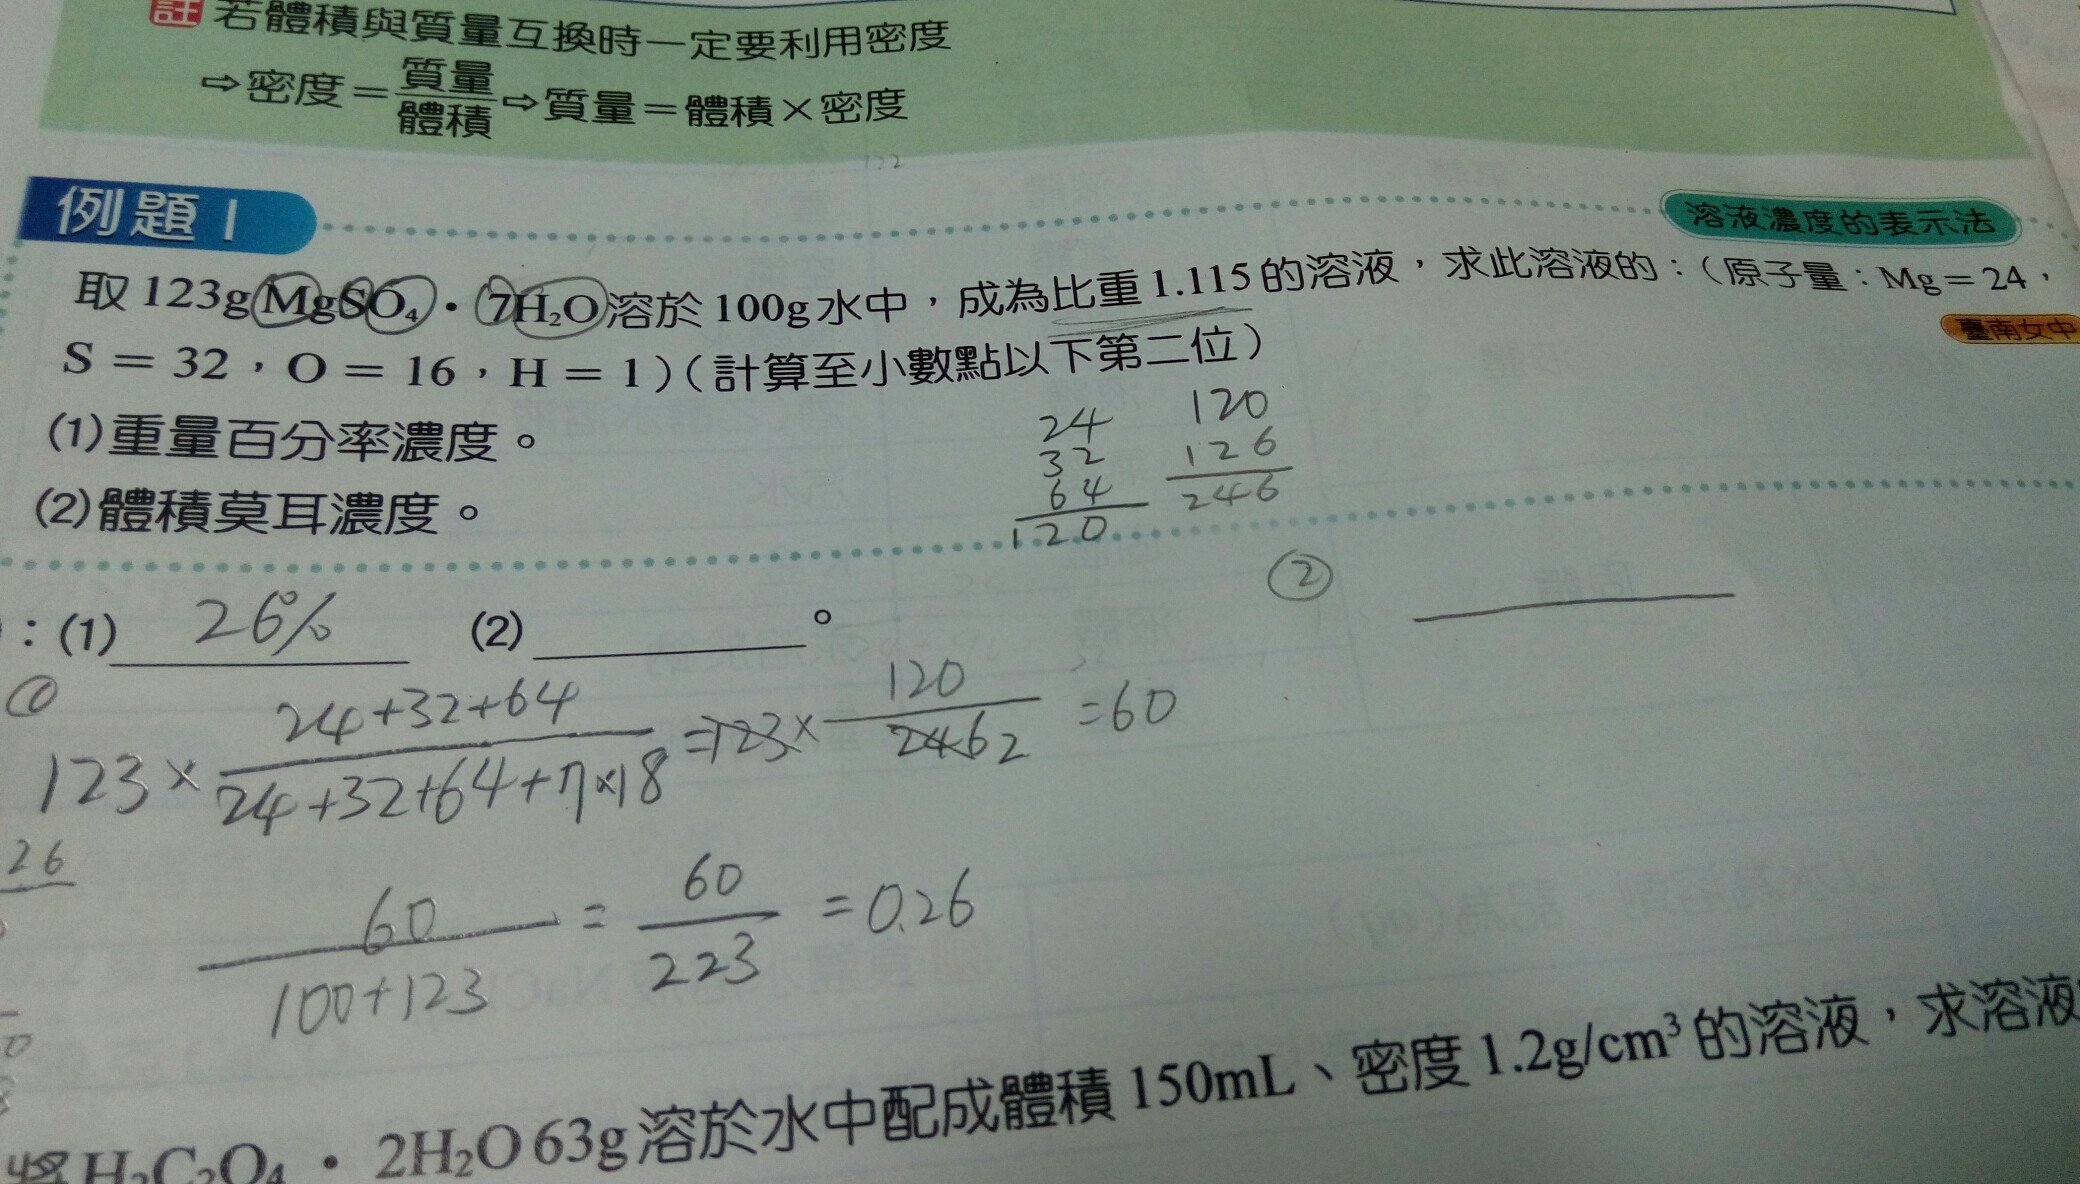 註 若體積與質量互換時一定要利用密度
⇨密度=質量/體積⇨質量=體積×密度
例題1
溶液濃度的表示法
取123g MgSO₄·7H₂O溶於100g水中，成為比重1.115的溶液，求此溶液的：(原子量：Mg=24，
臺南女中
S=32，O=16，H=1)(計算至小數點以下第二位)
(1)重量百分率濃度。
(2)體積莫耳濃度。
24
32
64
120
120
126
246
：(1) 26% (2) 。
②
①
123×(24+32+64)/(24+32+64+7×18)=123×120/246 2=60
26
60/(100+123)=60/223=0.26
將H₂C₂O₄·2H₂O 63g溶於水中配成體積150mL、密度1.2g/cm³的溶液，求溶液